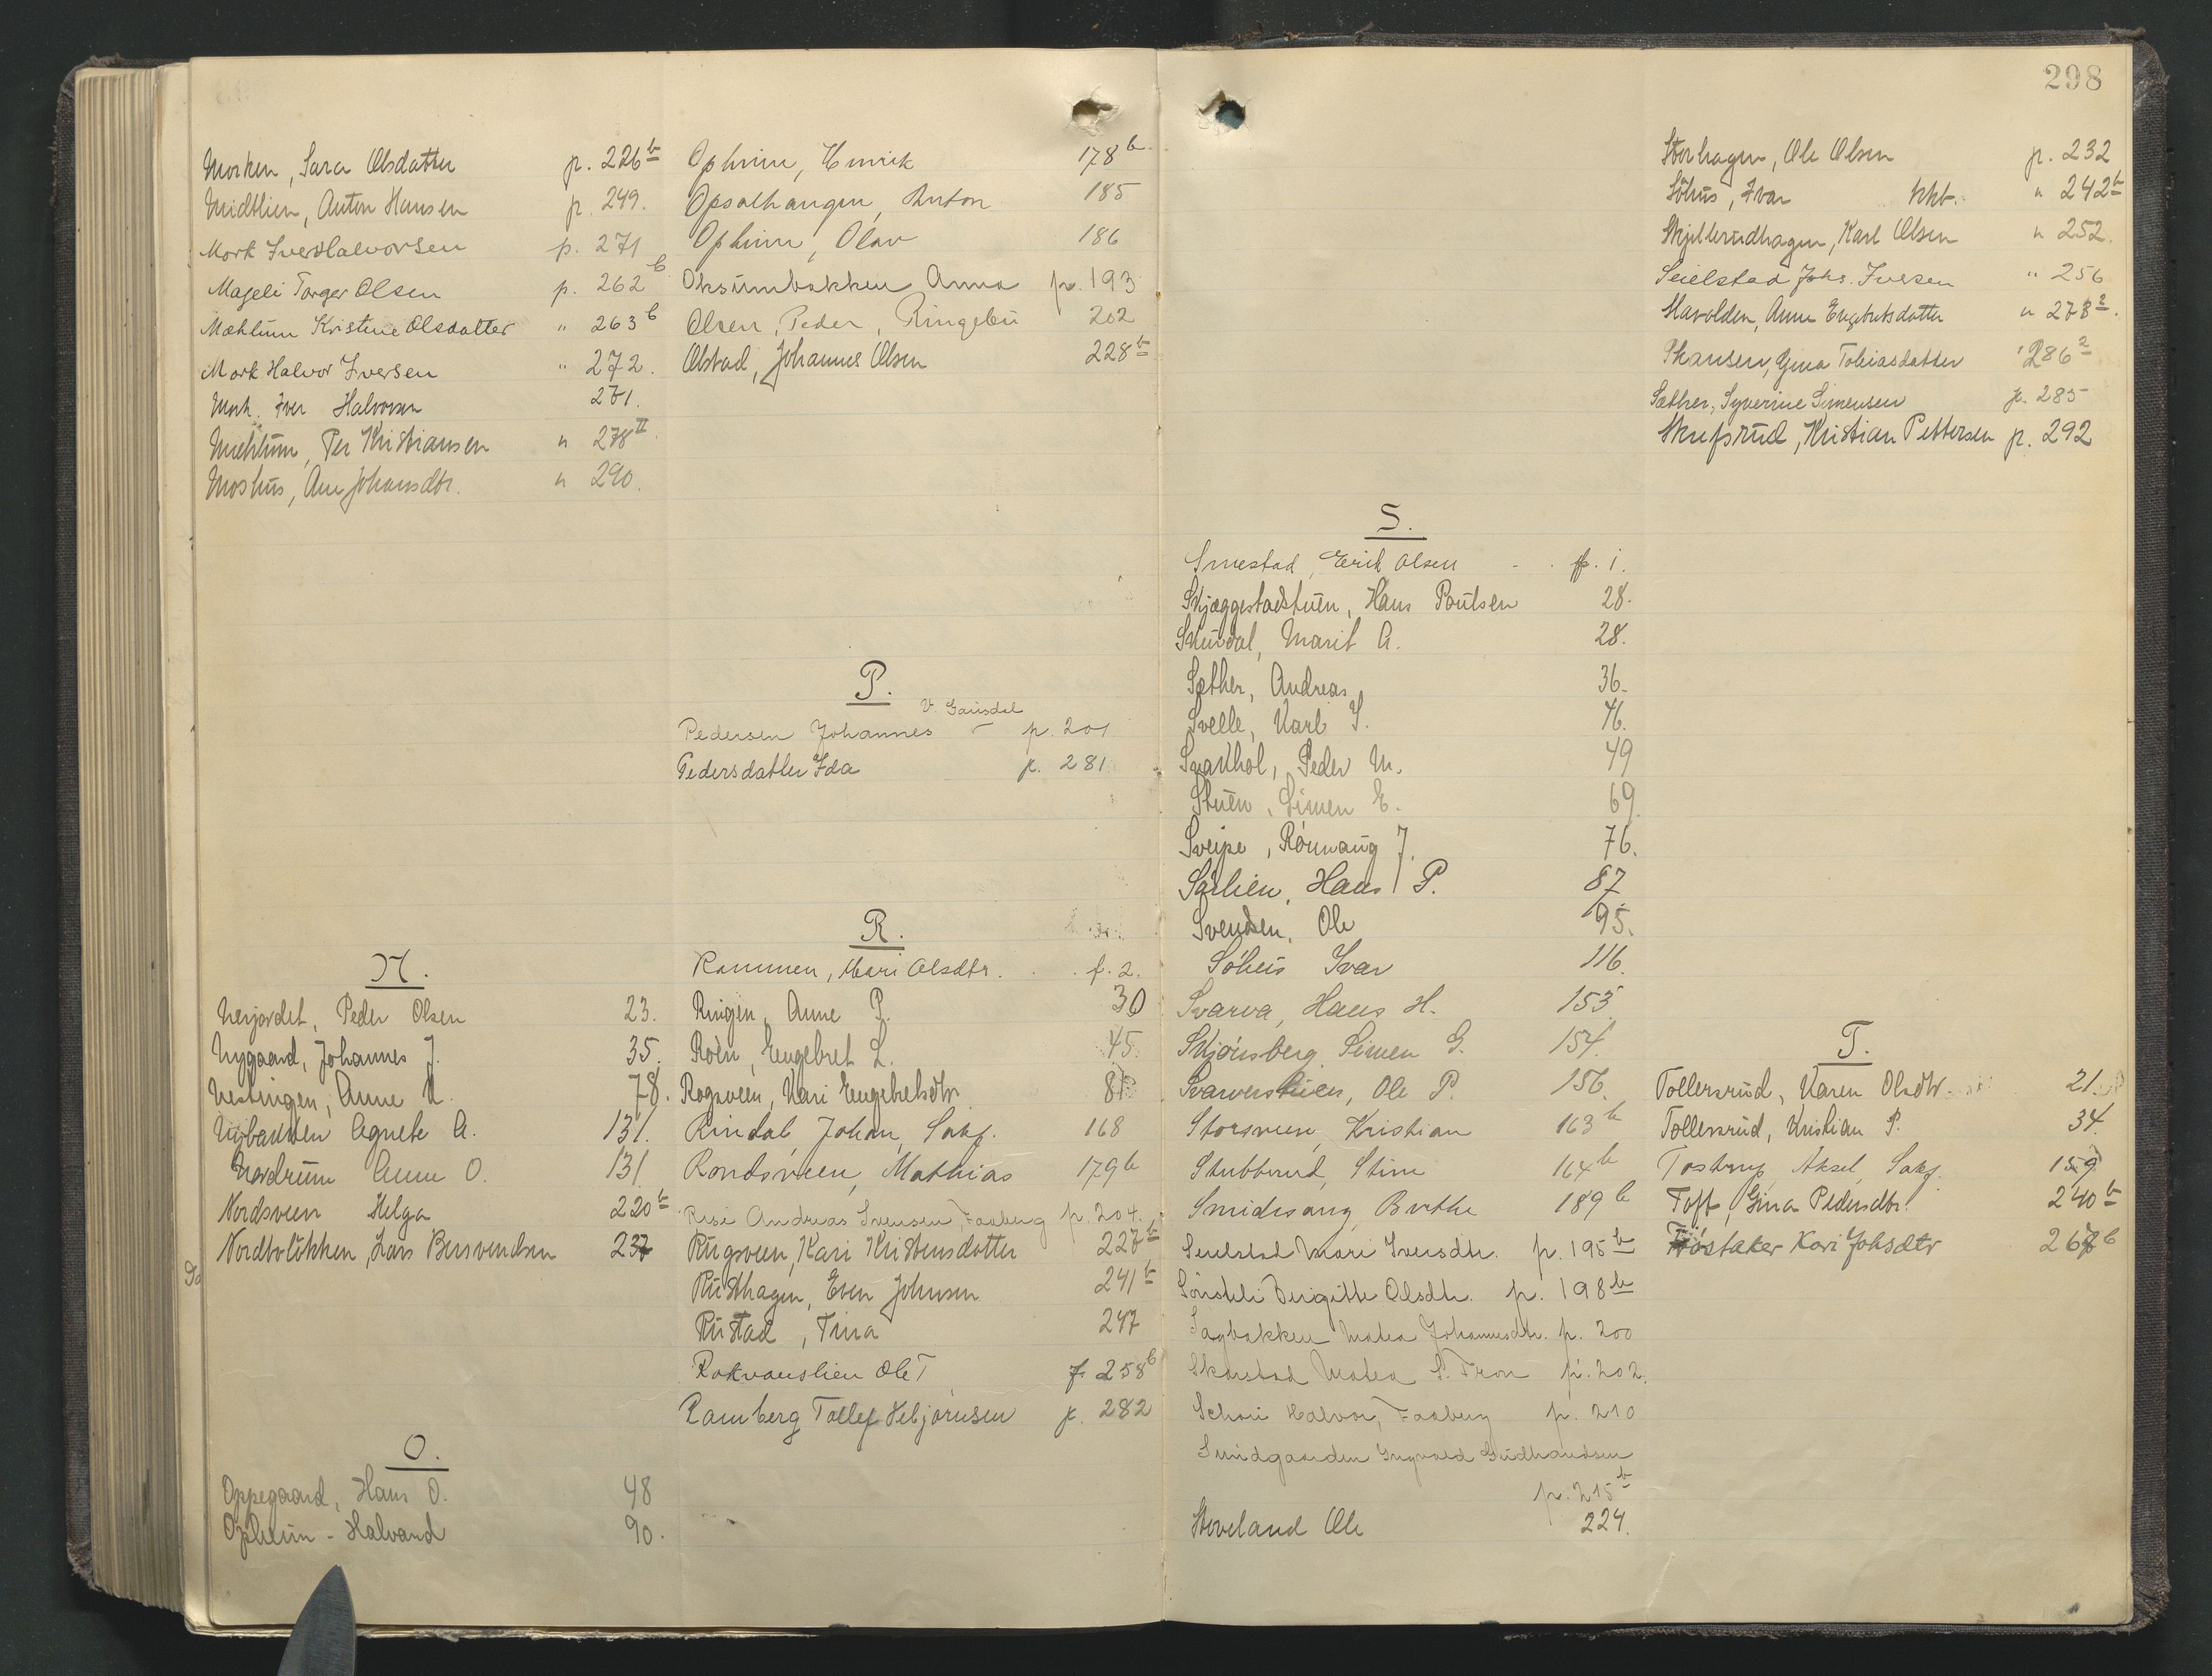 298
Morken, Sara Olsdatter p. 226b
Midtlien, Anton Hansen p. 249.
Mork Iver Halvorsen p. 271
Mageli Torger Olsen p. 262b
Mæhlum Kristine Olsdatter " 263b
Mork Halvor Iversen " 272.
Mork. Iver Halvorsen 271.
Mæhlum, Per Kristiansen " 278II
Moshus, Ane Johansdtr. " 290.
N.
Nerjordet, Peder Olsen 23.
Nygaard, Johannes J. 35.
Nestingen, Anne 78.
Nybakken Agnete A. 131.
Nordrum Anne O. 131
Nordsveen Helga 220b
Nordbolökken, Lars Bersvendsen 237
O.
Oppegaard, Hans O. 48
Opheim - Halvard 90.
Opheim, Henrik 178b.
Opsalhaugen, Anton 185
Opheim, Olav 186
Oksumbakken Anna p. 193
Olsen, Peder, Ringebu 202
Olstad, Johannes Olsen 228b
P.
V. Gausdal
Pedersen Johannes — p. 201
Pedersdatter Ida p. 281
R.
Rammen, Mari Olsdtr. . . f. 2.
Ringen, Anne P. 30
Roèn, Engebret L. 45.
Rogsveen, Kari Engebretsdtr. 81
Rindal, Johan, Sakf. 168
Rondsveen, Mathias 179b
Rise Andreas Svensen, Faaberg p. 204.
Rugsveen, Kari Kristensdatter 227b
Rusthagen, Even Johnsen 241b
Rustad, Tina 247
Rokvamslien Ole T f 258b
Ramberg Tollef Vebjørnsen p. 282
S.
Smestad, Erik Olsen - . p. 1.
Skjæggestadstuen, Hans Poulsen 28.
Skurdal, Marit A. 28.
Sæther, Andreas 36.
Svelle, Karl I. 46.
Svakhol, Peder M. 49
Stuen, Simen E. 69
Sveipe, Rønnaug J. 76.
Sørlien, Hans P. 87.
Svendsen, Ole 95.
Søhus Ivar 116.
Svarva, Hans H. 153.
Skjønsberg Simen G. 154.
Svarverstuen, Ole P. 156.
Storsveen, Kristian 163b
Stubberud, Stine 164b
Smidesang, Berthe 189b
Seielstad Mari Iversdtr. p. 195b
Sørsteli Birgitte Olsdtr. p. 198b
Sagbakken Matea Johannesdtr. p. 200
Skarstad Matea S. Fron p. 202.
Schøn Halvor, Faaberg p. 210
Sundgaarden Ingvald Gudbrandsen
p. 215b
Stoveland Ole 224.
Storhagen, Ole Olsen p. 232
Söhus, Ivar " 242b
Skjellerudhagen, Karl Olsen " 252.
Seielstad Johs. Iversen " 256
Skavolden, Anne Engebretsdatter " 2782.
Skansen, Gina Tobiasdatter 2862
Sæther, Syverine Simensen p. 285
Skufsrud, Kristian Pettersen p. 292
T.
Tollersrud, Karen Olsdtr. 21.
Tollersrud, Kristian P. 34.
Tostrup, Aksel, Sakf. 159
Toft, Gina Pedersdtr. 240b
Töstaker Kari Johsdtr 267b